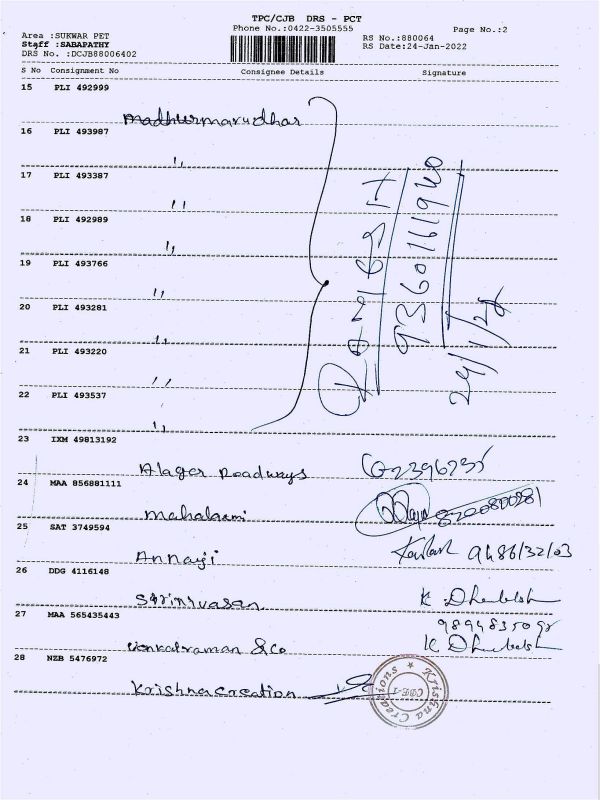 TPC/CJB DRS - PCT
Phone No.:0422-3505555
Page No.:2
Area :SUKWAR PET
Staff :SABAPATHY
DRS No. :DCJB88006402
RS No.:880064
RS Date:24-Jan-2022
S No Consignment No Consignee Details Signature
15 PLI 492999
Madhurmarudhar
16 PLI 493987
,,
17 PLI 493387
,,
18 PLI 492989
,,
19 PLI 493766
,,
20 PLI 493281
,,
21 PLI 493220
,,
22 PLI 493537
,,
9360161940
24/1/22
23 IXM 49813192
Alager Roadways
24 MAA 856881111
Mahalaxmi
25 SAT 3749594
Annayji
26 DDG 4116148
Srinivasan K. Dhubelsh
27 MAA 565435443
Venkatraman & Co K Dhubelsh
28 NZB 5476972
Krishna Creation
Krishna Creations
CBE-1